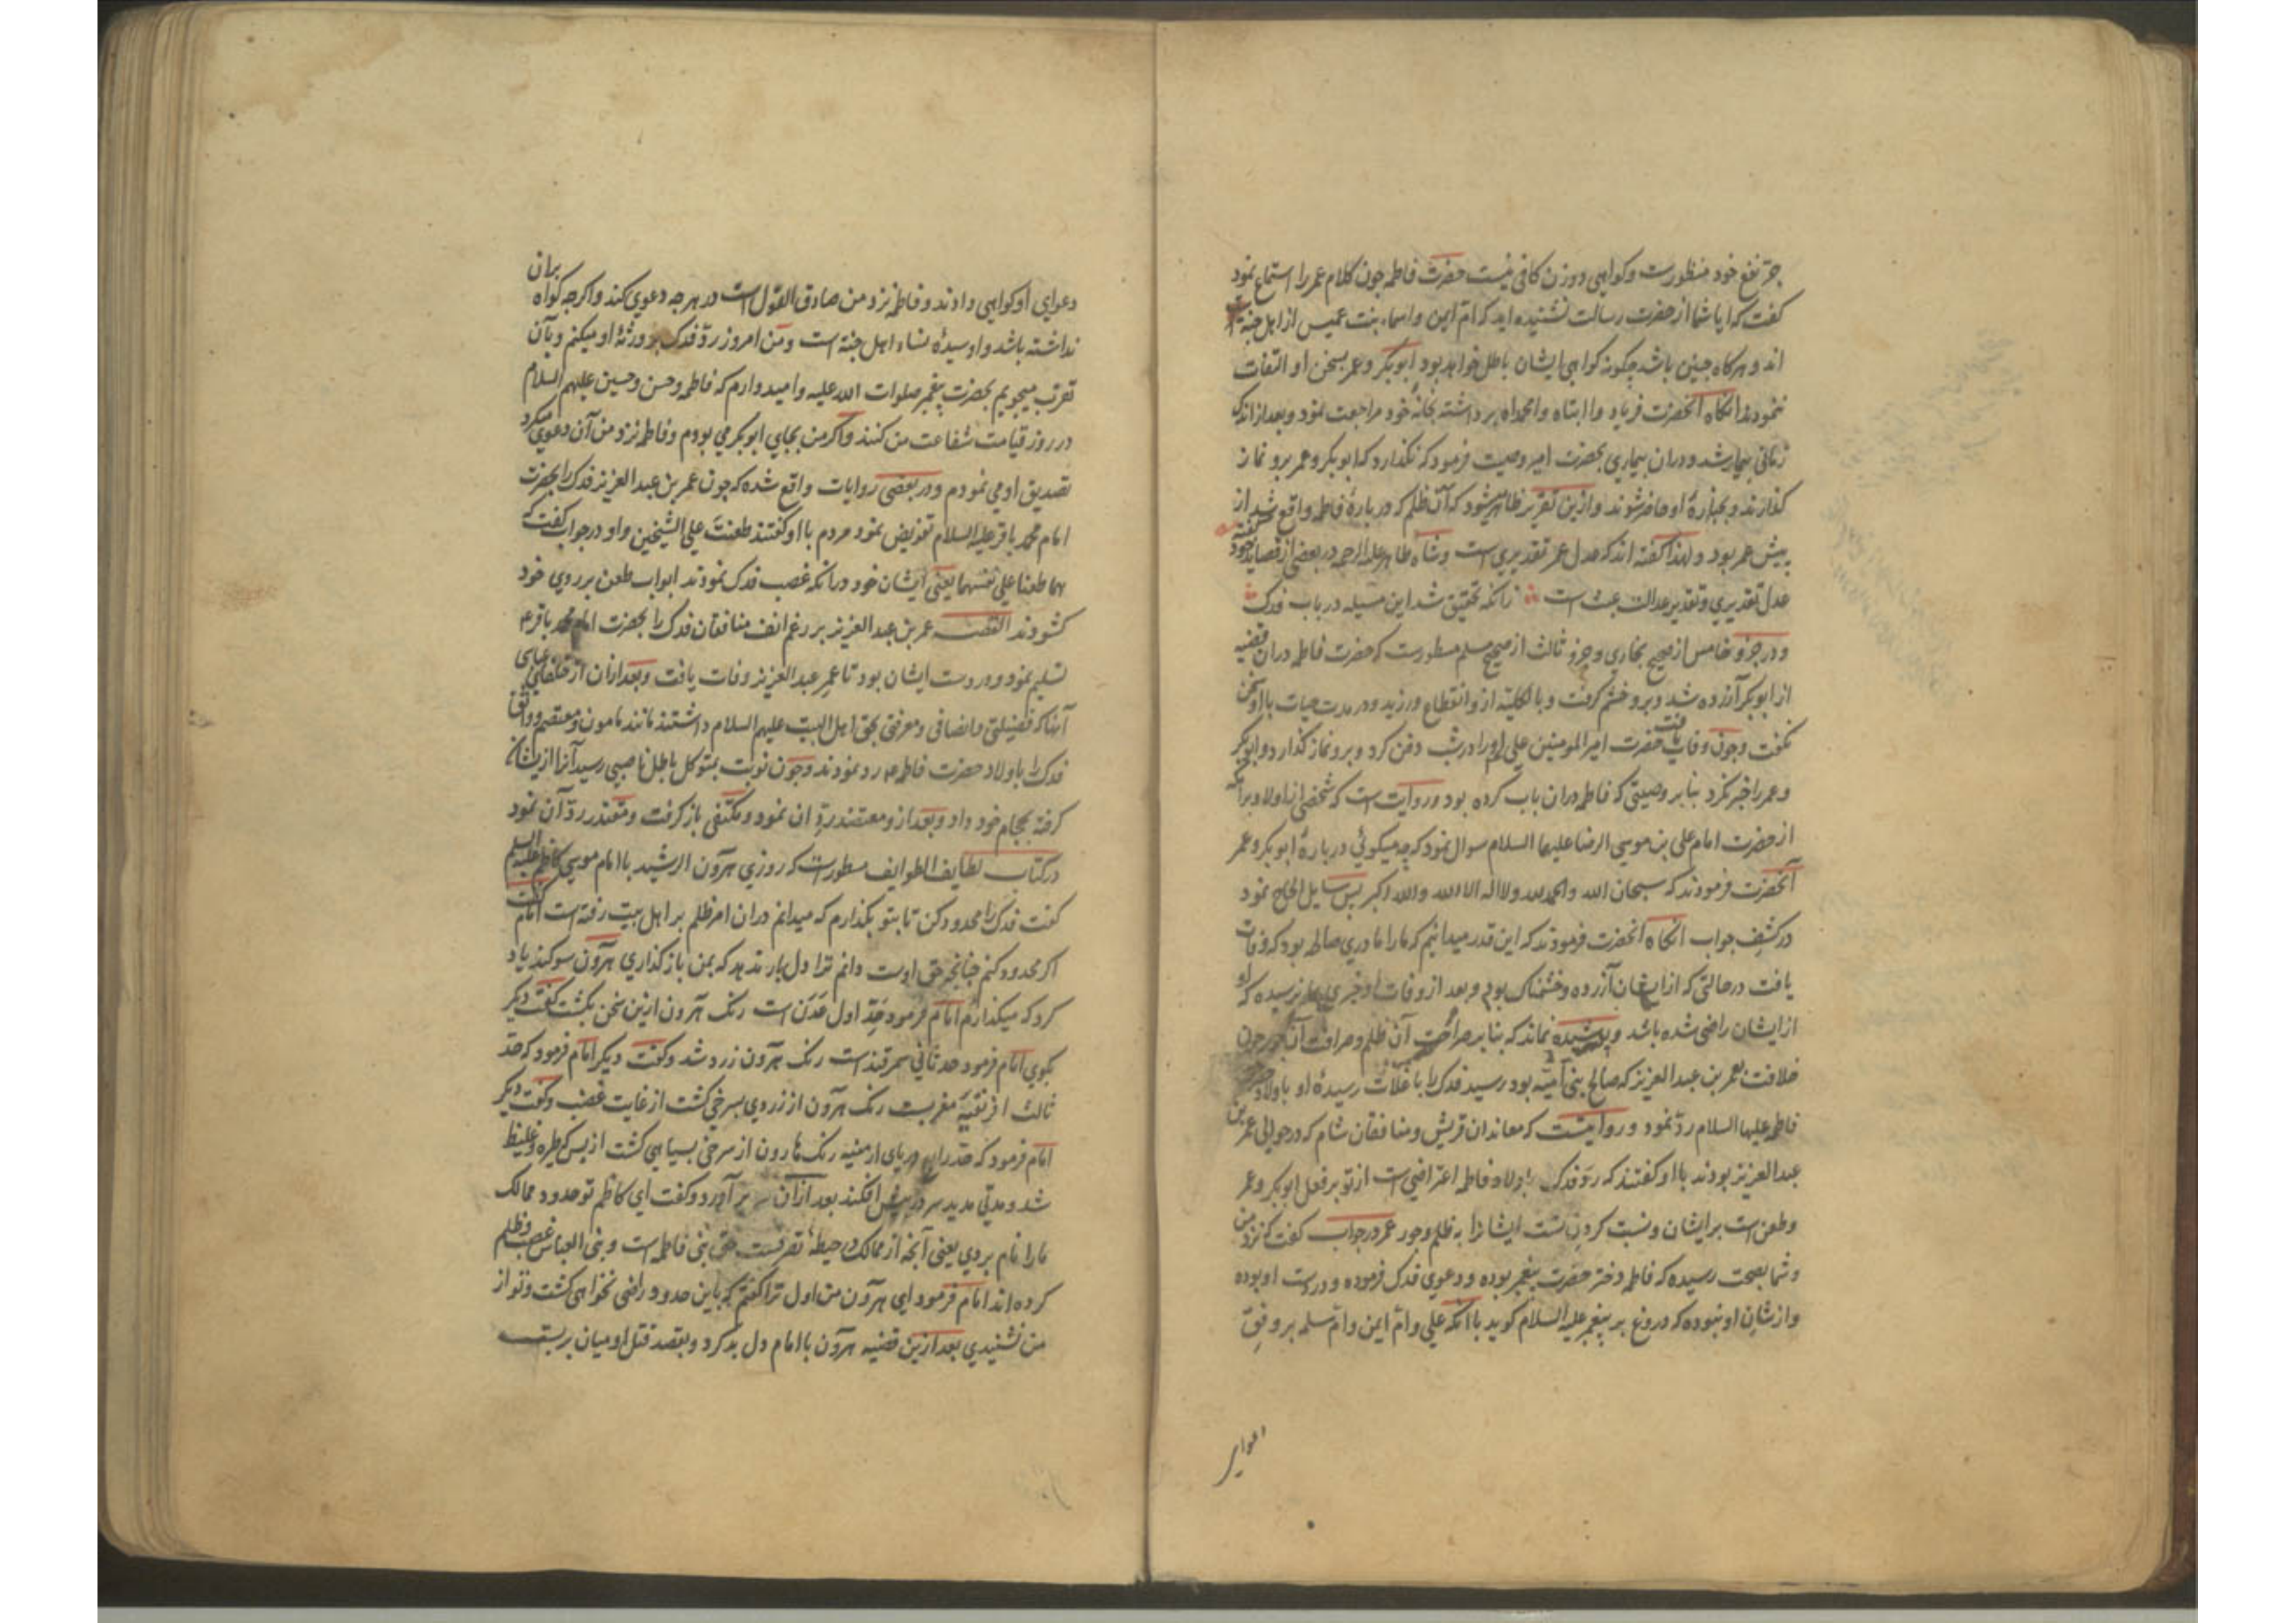 جرّ نفع خود منظورست و کواهی دو زن کافی نیست حضرت فاطمه چون کلام عمر را استماع نمود
کفت که ایا شما از حضرت رسالت نشنیده اید که ام ایمن و اسماء بنت عمیس از اهل جنة
اند و هرکاه چنین باشد چکونه کواهی ایشان باطل خواهد بود ابوبکر و عمر بسخن او التفات
ننمودند انکاه آنحضرت فریاد وا ابتاه وا محمداه برداشته بخانهٔ خود مراجعت نمود و بعد از اندک
زمانی بیمار شد و دران بیماری بحضرت امیر وصیت فرمود که نکذارد که ابوبکر و عمر برو نماز
کذارند و بجنازهٔ او حاضر شوند و ازین تقریر ظاهر میشود که آن ظلم که دربارهٔ فاطمه واقع شد از
پیش عمر بود و لهذا کفته اند که عدل عمر تقدیری است و شاه طاهر علیه الرحمه در بعضی از قصاید خود کفته
عدل تقدیری و تقدیر عدالت عبث است زانکه تحقیق شد این مسیله در باب فدک
و در جزو خامس از صحیح بخاری و جزو ثالث از صحیح مسلم مسطورست که حضرت فاطمه دران قضیه
از ابوبکر آزرده شد و برو خشم کرفت و بالکلیه ازو انقطاع ورزید و در مدت حیات با او سخن
نکفت و چون وفات یافت حضرت امیر المومنین علی او را در شب دفن کرد و برو نماز کذارد و ابوبکر
و عمر را خبر نکرد بنابر وصیتی که فاطمه دران باب کرده بود و روایت است که شخصی از اولاد برامکه
از حضرت امام علی بن موسی الرضا علیهما السلام سوال نمود که چه میکوئی دربارهٔ ابوبکر و عمر
آنحضرت فرمودند که سبحان الله والحمد لله ولا اله الا الله والله اکبر پس سایل الحاح نمود
در کشف جواب انکاه آنحضرت فرمودند که این قدر میدانیم که ما را مادری صالحه بود که وفات
یافت در حالتی که از ایشان آزرده و خشمناک بود و بعد از وفات او خبری بما نرسیده که او
از ایشان راضی شده باشد و پوشیده نماند که بنابر صراحت آن ظلم و صرافت آن جور چون
خلافت بعمر بن عبد العزیز که صالح بنی امیّه بود رسید فدک را با غلّات رسیدهٔ او باولاد حضرت
فاطمه علیها السلام ردّ نمود و روایتست که معاندان قریش و منافقان شام که در حوالی عمر بن
عبد العزیز بودند با او کفتند که ردّ فدک باولاد فاطمه اعتراضی است از تو بر فعل ابوبکر و عمر
و طعن است بر ایشان و نسبت کردن تست ایشانرا به ظلم و جور عمر در جواب کفت که نزد من
و شما بصحت رسیده که فاطمه دختر حضرت پیغمبر بوده و دعوی فدک فرموده و در دست او بوده
و از شان او نبوده که دروغ بر پیغمبر علیه السلام کوید با آنکه علی و امّ ایمن و امّ سلمه بر وفق
دعوای او کواهی دادند و فاطمه نزد من صادق القول است در هرچه دعوی کند و اکرچه کواه بران
نداشته باشد و او سیدهٔ نساء اهل جنة است و من امروز ردّ فدک بورثهٔ او میکنم و بآن
تقرب میجویم بحضرت پیغمبر صلوات الله علیه و امیدوارم که فاطمه و حسن و حسین علیهم السلام
در روز قیامت شفاعت من کنند و اکر من بجای ابوبکر می بودم و فاطمه نزد من آن دعوی میکرد
تصدیق او می نمودم و در بعضی روایات واقع شده که چون عمر بن عبد العزیز فدک را بحضرت
امام محمد باقر علیه السلام تفویض نمود مردم با او کفتند طعنت علی الشیخین و او در جواب کفت که
هما طعنا علی نفسهما یعنی ایشان خود درانکه غصب فدک نمودند ابواب طعن بر روی خود
کشودند القصه عمر بن عبد العزیز بر رغم انف منافقان فدک را بحضرت امام محمد باقر ع
تسلیم نمود و در دست ایشان بود تا عمر عبد العزیز وفات یافت و بعد ازان از خلفای عباسی
آنها که فضیلتی و انصافی و معرفتی بحق اهل البیت علیهم السلام داشتند مانند مامون و معتصم و واثق
فدک را باولاد حضرت فاطمه ع رد نمودند و چون نوبت بمتوکل باطل ناصبی رسید آنرا از ایشان
کرفته بحجام خود داد و بعد ازو معتضد ردّ ان نمود و مکتفی باز کرفت و مقتدر ردّ آن نمود
در کتاب لطایف الطوایف مسطورست که روزی هرون الرشید با امام موسی کاظم علیه السلم
کفت فدک را محدود کن تا بتو بکذارم که میدانم دران امر ظلم بر اهل بیت رفته است امام کفت
اکر محدود کنم چنانچه حق اوست دانم ترا دل یار ندهد که بمن باز کذاری هرون سوکند یاد
کرد که میکذارم امام فرمود حدّ اول عدن است رنک هرون ازین سخن بکشت کفت دیکر
بکوی امام فرمود حد ثانی سمرقند است رنک هرون زرد شد و کفت دیکر امام فرمود که حدّ
ثالث افریقیه مغربست رنک هرون از زردی بسرخی کشت از غایت غضب و کفت دیکر
امام فرمود که حدّ رابع دریای ارمنیه رنک هارون از سرخی بسیاهی کشت از بس که طیره و غلیظ
شد و مدتی مدید سر در پیش افکند بعد ازآن سر برآورد و کفت ای کاظم تو حدود ممالک
ما را نام بردی یعنی آنچه از ممالک در حیطهٔ تصرفست حق بنی فاطمه است و بنی العباس غصب و ظلم
کرده اند امام فرمود ای هرون من اول ترا کفتم که باین حدود راضی نخواهی کشت و تو از
من نشنیدی بعد ازین قضیه هرون با امام دل بد کرد و بقصد قتل او میان بربست